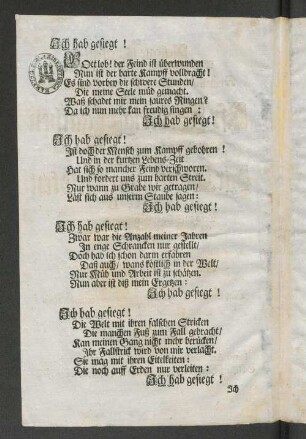 Ich hab gesiegt !
GOtt lob! der Feind ist überwunden
Nun ist der harte Kampff volldracht!
Es sind vorbey die schwere Stunden/
Die meine Seele müd gemacht.
Waß schadet mir mein saures Ringen?
Da ich nun mehr kan freudig singen :
Ich hab gesiegt!
Ich hab gesiegt!
Ist doch der Mensch zum Kampff gebohren !
Und in der kurtzen Lebens-Zeit
Hat sich so mancher Feind verschworen.
Und fordert uns zum harten Streit.
Nur wann zu Grabe wir getragen/
Läst sich aus unserm Staube sagen:
Ich hab gesiegt!
Ich hab gesiegt!
Zwar war die Anzahl meiner Jahren
In enge Schrancken nur gestellt/
Doch hab ich schon darin erfahren
Daß auch/ wans köstlich in der Welt/
Nur Müh und Arbeit ist zu schätzen.
Nun aber ist diß mein Ergetzen:
Ich hab gesiegt !
Ich hab gesiegt!
Die Welt mit ihren falschen Stricken
Die manchen Fuß zum Fall gebracht/
Kan meinen Gang nicht mehr berücken/
Ihr Fallstrick wird von mir verlacht.
Sie mag mit ihren Eitelkeiten:
Die noch auff Erden nur verleiten :
Ich hab gesiegt !
Ich